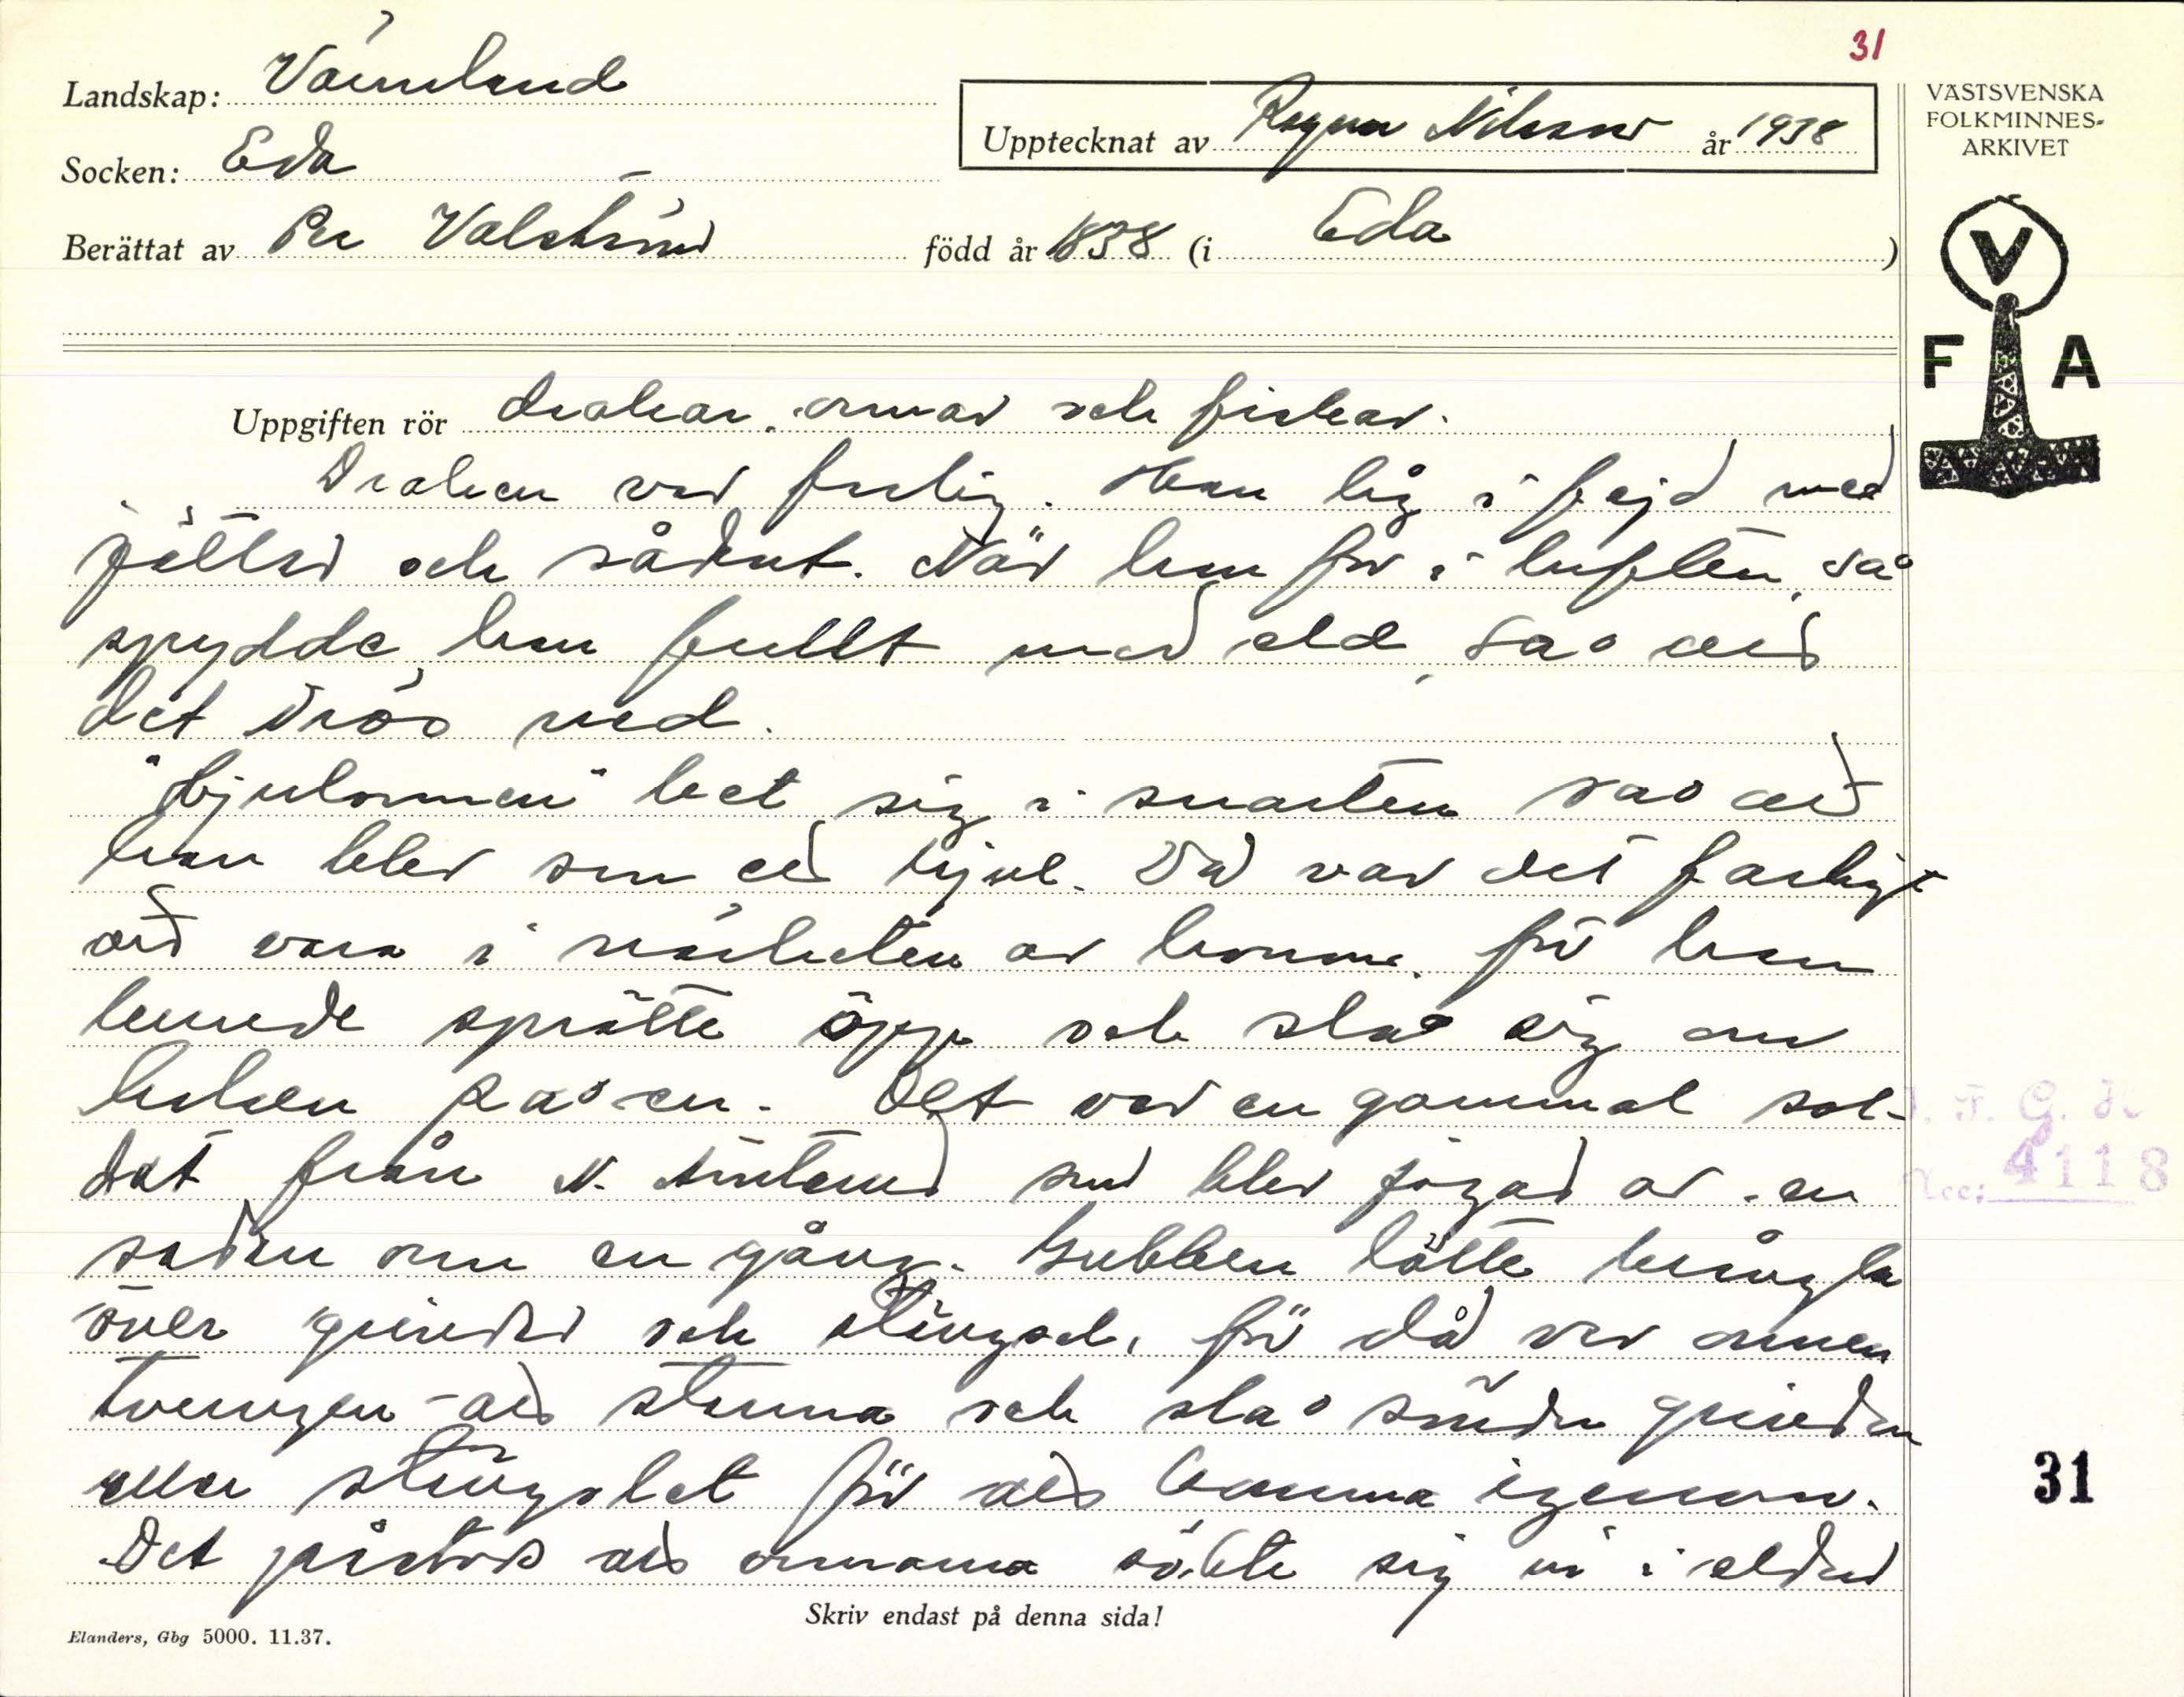 31
Landskap: Värmland
Upptecknat av Ragnar Nilsson år 1938
Socken: Eda
Berättat av Per Valström född år 1838 (i Eda )
VÄSTSVENSKA
FOLKMINNES-
ARKIVET
V
F A
Uppgiften rör drakar, ormar och fiskar.
Draken var farlig. Han låg i fejd med
jättar och sådant. När han for i luften, så
spydde han fullt med eld, så att
det drös ned.
"Hjulormen" bet sig i svansten så att
han blev som ett hjul. Då var det farligt
att vara i närheten av honom, för han
kunde sprätte öpp och slå sig om
halsen på en. Det var en gammal sol-
dat från N. som blev jagad av en
sådan orm en gång. Gubben lätte
över grindar och stängsel, för då var ormen
tvungen att stanna och slå sönder grinden
eller stängslet för att komma igenom.
Det påstås att ormarna sökte sig in i eldar
I. F. G. H.
Acc: 4118
31
Skriv endast på denna sida!
Elanders, Gbg 5000. 11.37.